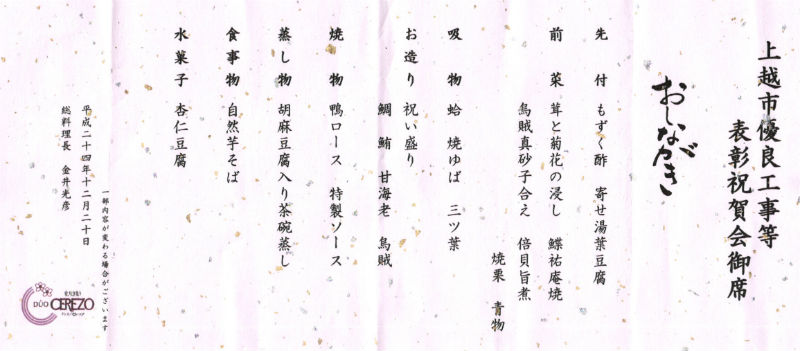 上越市優良工事等
表彰祝賀会御席
おしながき
先付 もずく酢 寄せ湯葉豆腐
前菜 茸と菊花の浸し 鰈祐庵焼
烏賊真砂子合え 倍貝旨煮
焼栗 青物
吸物 蛤 焼ゆば 三ツ葉
お造り 祝い盛り
鯛 鮪 甘海老 烏賊
焼物 鴨ロース 特製ソース
蒸し物 胡麻豆腐入り茶碗蒸し
食事物 自然芋そば
水菓子 杏仁豆腐
一部内容が変わる場合がございます
平成二十四年十二月二十日
総料理長 金井光彦
DUO CEREZO